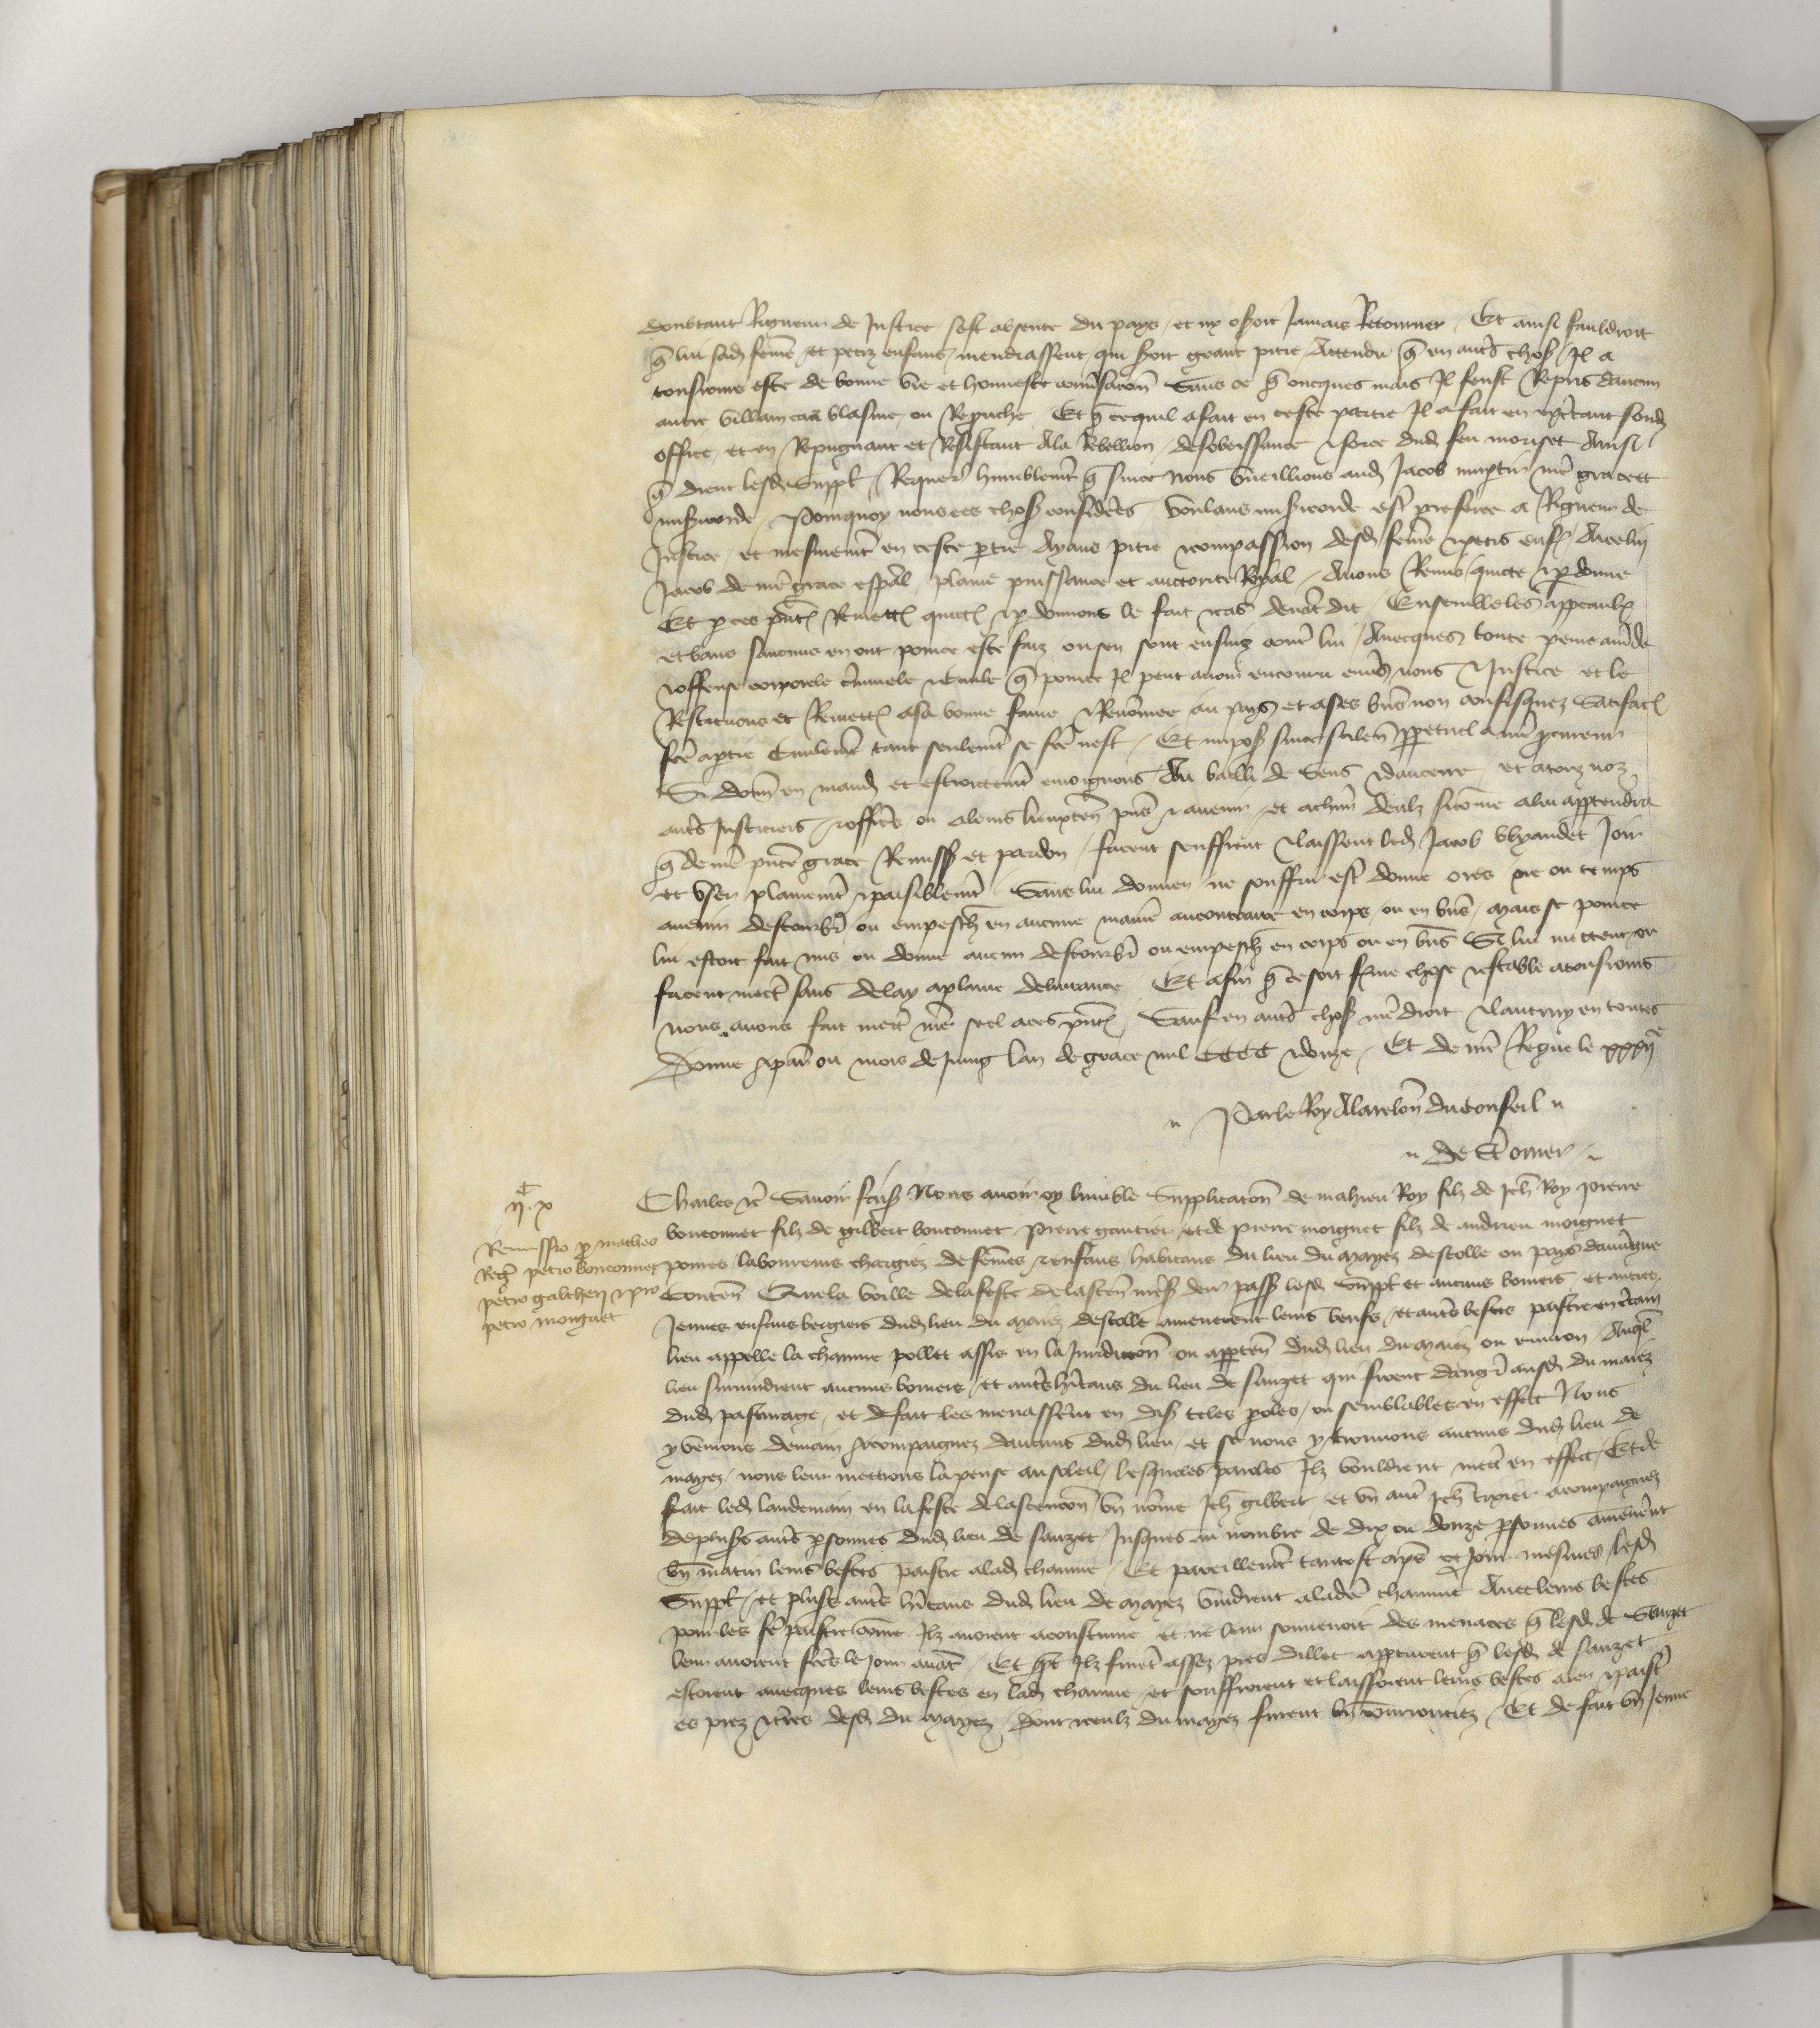 doubtant Rigueur de Justice sest absente du pays et ny oseroit Jamais Retourner Et ainsi fauldroit
q̃ lui sad femẽ et petiz enfans mendiassent qui seroit grant pitie Attendu q̃ en autrs choses Il a
tousiours este de bonne vie et honneste conũsacoñ Sans ce q̃ oncques mais Il feust Repris daucun
autre villain cas blasme ou Reprouche Et q̃ cequil a fait en ceste partie Il a fait en exc̃tant sond
office et en Repugnant et Resistant Ala Rebellion desobeissance et force dud feu moriset Ainsi
q̃ dient lesd Suppl Requerãs humblemẽt q̃ sur ce Nous vueillions aud Jacob impartir nr̃e grace et
misericorde Pourquoy nous ces choses considerées voulans misericorde estr̃ preferee a Rigueur de
Justice et mesmemẽt en ceste p̃tie Ayans pitie et compassion desd femẽ et petis enfs Aicelui
Jacob de nr̃e grace esp̃al plaine puissance et auctorite Royal Avons Remis quicte et p̃donne
Et p̃ ces p̃nt̃ Remett̃ quict̃ et p̃donnons le fait et cas deuãt dit Ensemble les appeaulx
et bans saucuns en ont pource este faiz ou sen sont ensuiz contr̃ lui Avecques toute peine amẽde
et offense corporele crĩminele et ciuile q̃ pource Il peut auoir encouru enũs nous et Justice et le
Restituons et Remett̃ a sa bonne fame et Renõmee au pays et a ses biẽs non confisquez Satisfac̃
fẽe a p̃tie Ciuilemẽt tant seulemẽt se fẽe nest Et imposõs sur ce silenc̃ p̃petuel a nr̃e p̃cureur
Si donñ en mand et estroictemẽt enioignons Au bailli de Sens et daucerre et a touz noz
autrs Justiciers et offic̃s ou a leurs lieuxteñ p̃ns et auenir et a chũn deulx si cõme a lui appartendra
q̃ de nr̃e p̃nte grace Remissioñ et pardon facent seuffrent et laissent led Jacob blyaudet Joir
et vser plainemẽt et paisiblemẽt Sans lui donner ne souffrir estr̃ donne ores ne ou temps
auenir destourbr̃ ou empesch̃ en aucune maniẽ au contraire en corps ou en biẽs mais se pource
lui estoit fait mis ou donne aucun destourbr̃ ou empesch̃ en corps ou en biẽs Si lui mettent ou
facent mectr̃ sans delay a plaine deliurance Et afin q̃ ce soit ferme chose et estable a tousiours
nous auons fait mettr̃ nr̃e seel a ces p̃nt̃ Sauf en autrs choses nr̃e droit et lautruy en toutes
Donne a paris ou mois de Juing lan de grace mil CCCC et donze Et de nr̃e Regne le xxxij e
Par le Roy Ala relõn du conseil
de St omer
ijC x
Charles rc̃ Sauoir faisõs Nous auoir oy lumble Supplicatoñ de mahieu Roy filz de Jeh̃ Roy pierre
Remissio p̃ matheo
bonconnet filz de gilbert bonconnet pierre gautier et de pierre moignet filz de andrieu moignet
Reg̃ petro bonconnet
poures laboureurs chargiez de femes et enfans habitans du lieu du mayez destolle ou pays dauuergne
petro galtheri et pro
Conteñ Que la veille de la feste de lasceñ nr̃e s̃ derr̃ passe lesd Suppl et aucuns bouiers et autres
petro moignet
Jeunes enfans bergiers dud lieu du mayez destolle amenerent leurs beufs et autrs bestes paistre en c̃tain
lieu appelle la chaume pollet assis en la Juridicioñ ou apparteñ dud lieu du mayez ou enuiron Auql̃
lieu suruindrent aucuns bouiers et autrs hĩtans du lieu de sauzet qui firent dangr̃ ausd du mayez
dud pasturage et de fait les menasserẽt en disãt teles p̃oles ou semblables en effect Nous
y venrons demain acompaignez daucuns dud lieu et se nous y trouuons aucuns dud lieu de
mayez nous leur mectrons la pense au soleil lesqueles paroles Ilz vouldrent mectr̃ en effect Et de
fait led landemain en la feste de lascencoñ vñ nõme Jeh̃ gilbert et vñ autr̃ Jeh̃ texier acompaignez
de pluss̃s autrs p̃sonnes dud lieu de sauzet Jusques au nombre de dix ou donze p̃sonnes amenẽrt
vñ matin leurs bestes paistre a lad chaume Et pareillemẽt tantost apr̃s ce Jour mesmes lesd
Suppl et pluss̃s autrs hĩtans dud lieu de mayez vindrent a lad̃te chaume Auec leurs bestes
pour les fẽ paistre cõme Ilz auoient acoustume et ne leur souuenoit des menaces q̃ lesd de Sauzet
leur auoient fẽes le Jour auãt Et qñt Ilz furẽt assez pres dillec apperceurent q̃ lesd de sauzet
estoient auecques leurs bestes en lad chaume et souffroient et laissoient leurs bestes aler et paistr̃
es prez et t̃res desd du mayez dont iceulx du mayez furent bñ courrouciez Et de fait vñ Jeune